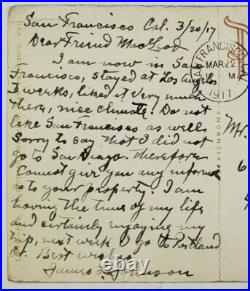 San Francisco Cal. 3/20/17
Dear Friend MacLeod
I am now in San
Francisco, stayed at Los Angeles
3 weeks, liked it very much
there, nice climate. Do not
like San Francisco as well
Sorry to say that I did not
go to San Diego. therefore
cannot give you any informa
as to your property. I am
having the time of my life
and certainly enjoying my
trip, next week I go to Portland
Or. Best wishes
James Johnson
FRANCISCO
MAR 22
M
1917
EXICHROME
Mr.